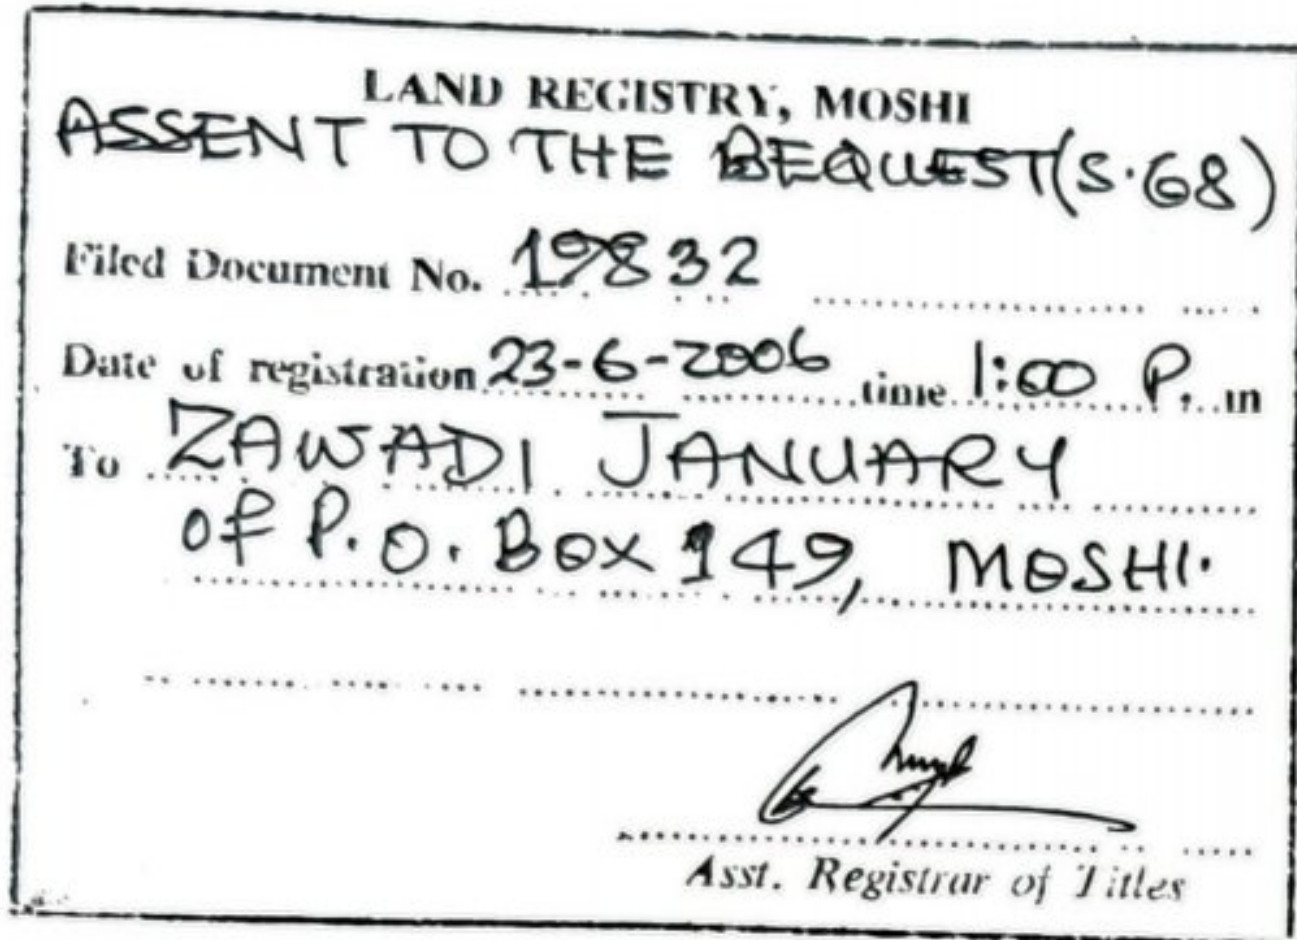 LAND REGISTRY, MOSHI
ASSENT TO THE BEQUEST (S.68)
Filed Document No. 19832
Date of registration 23-6-2006 time 1:00 P.m
To ZAWADI JANUARY
of P.O. Box 149, MOSHI.
Asst. Registrar of Titles